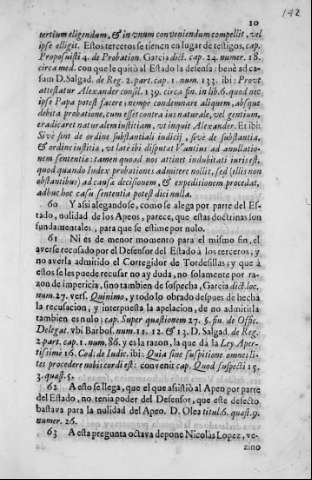 10
142
tertium eligendum, & in vnum conveniendum compellit, vel
ipse elligit. Estos terceros se tienen en lugar de testigos, cap.
Proposuisti 4. de Probation. Garcia dict. cap. 24. numer. 18.
circa med. con que le quitò al Estado la defensa: benè ad ca-
sum D. Salgad. de Reg. 2. part. cap. 1. num. 133. ibi: Provt
attestatur Alexander consil. 139. circa fin. in lib. 6. quod nec
ipse Papa potest facere; nempe condemnare aliquem, absque
debita probatione, cum esset contra ius naturale, vel gentium,
eradicaret naturalem iustitiam, vt inquit Alexander. Et ibi:
Sivè sint de ordine substantiali indicij, sivè de substantia,
& ordine iustitiæ, vt latè ibi disputat Vantius ad anullatio-
nem sententiæ: tamen quod nos attinet indubitati iuris est,
quod quando Iudex probationes admitere nollit, sed (ellis non
obstantibus) ad causæ decisionem, & expeditionem procedat,
adhuc hoc casu sententia potest dici nulla.
60 Y assi alegandose, como se alega por parte del Es-
tado, nulidad de los Apeos, parece, que estas doctrinas son
fundamentales, para que se estime por nulo.
61 Ni es de menor momento para el mismo fin, el
averse recusado por el Defensor del Estado à los terceros, y
no averla admitido el Corregidor de Tordesillas; y que à
estos se les puede recusar no ay duda, no solamente por ra-
zon de impericia, sino tambien de sospecha, Garcia dict. loc.
num. 27. vers. Quinimo, y todo lo obrado despues de hecha
la recusacion, y interpuesta la apelacion, de no admitirla
tambien es nulo: cap. Super quæstionem 27. §. fin. de Offic.
Delegat. vbi Barbos. num. 11. 12. & 13. D. Salgad. de Reg.
2. part. cap. 1. num. 86. y es la razon, la que dà la Ley Aper-
tissimi 16. Cod. de Iudic. ibi: Quia sine suspitione omnes li-
tes procedere nobis cordi est: convenit cap. Quod suspecti 15.
3. quæst. 5.
62 A esto se llega, que el que assistiò al Apeo por parte
del Estado, no tenia poder del Defensor, que este defecto
bastava para la nulidad del Apeo. D. Olea titul. 6. quæst. 9.
numer. 26.
63 A esta pregunta octava depone Nicolas Lopez, ve-
zino